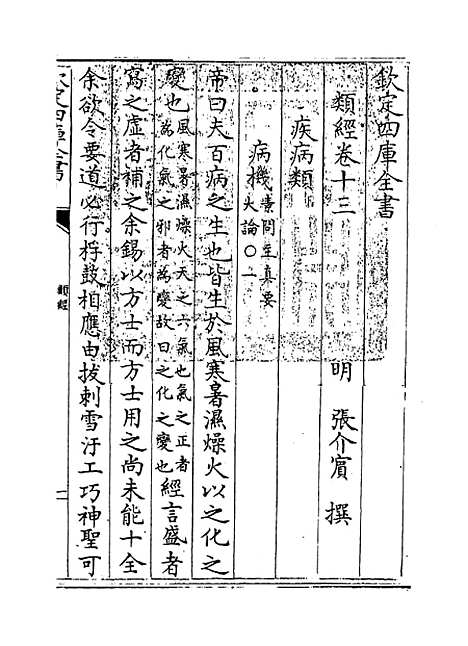 欽定四庫全書
類經卷十三
明 張介賓 撰
疾病類
病機素問至真要大論○一
帝曰夫百病之生也皆生於風寒暑濕燥火以之化之
變也風寒暑濕燥火天之六氣也氣之正者為化氣之邪者為變故曰之化之變也經言盛者
寫之虛者補之余錫以方士而方士用之尚未能十全
余欲令要道必行桴鼓相應由拔刺雪汙工巧神聖可
欽定四庫全書
類經
一